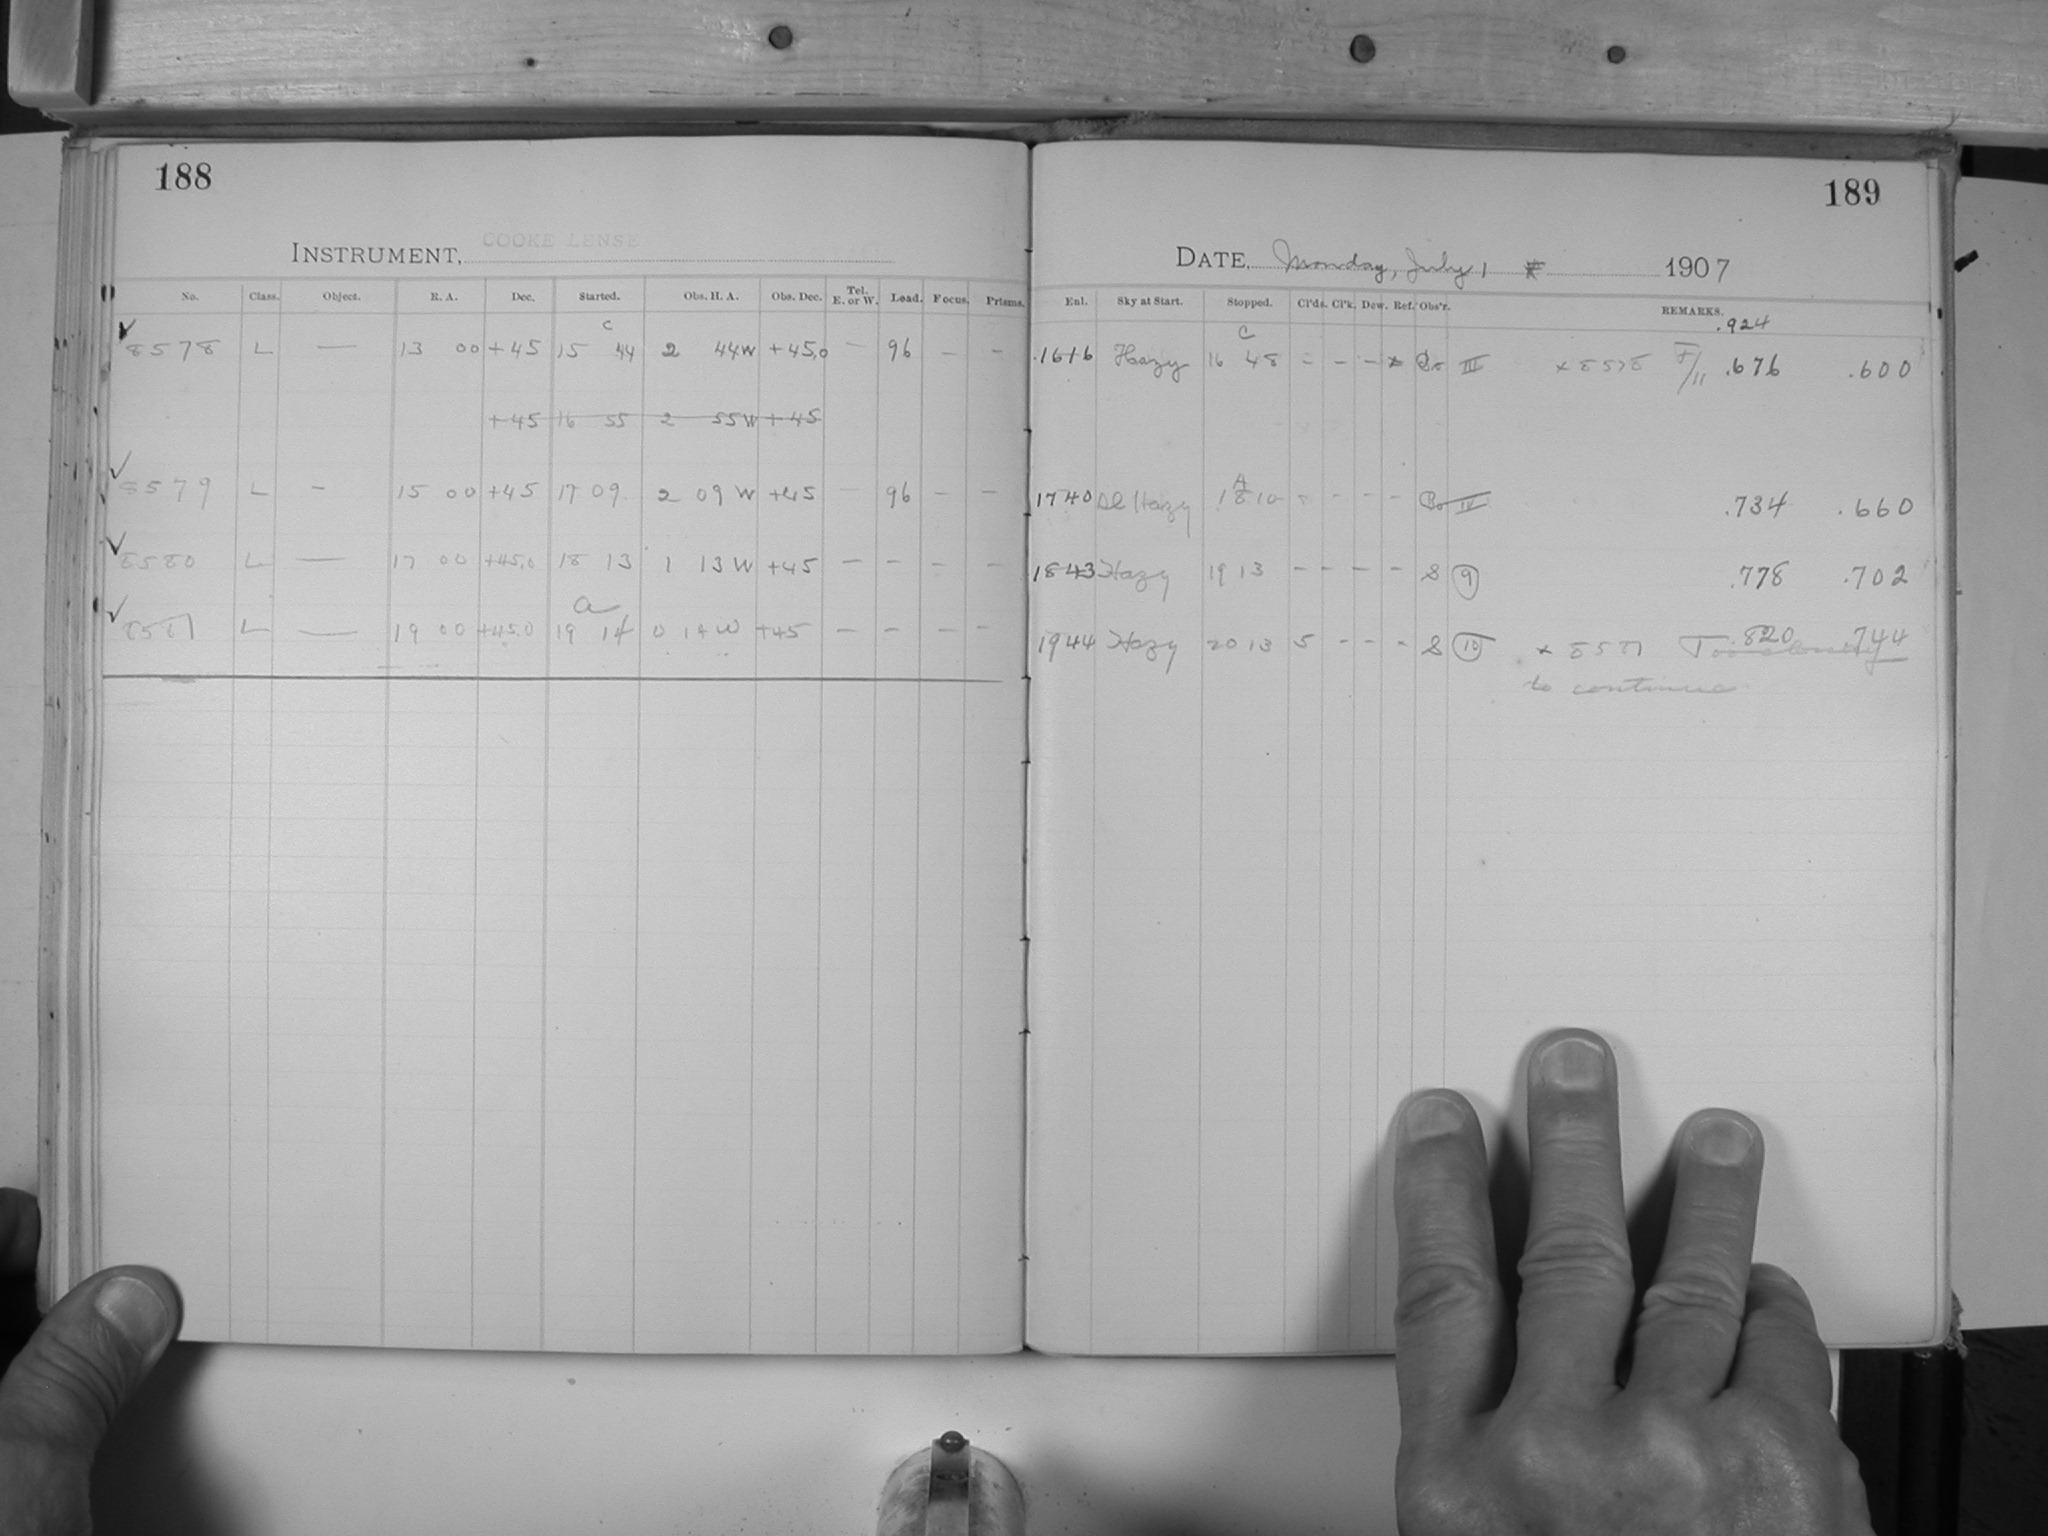 188
INSTRUMENT, COOKE LENSE
No. Class. Object. R. A. Dec. Started. Obs. H. A. Obs. Dec. Tel. E. or W. Load. Focus. Prisms.
c
8578 L — 13 00 +45 15 44 2 44W +45.0 — 96 — —
+45 16 55 2 55W +45
8579 L — 15 00 +45 17 09 2 09 W +45 — 96 — —
8580 L — 17 00 +45.0 18 13 1 13W +45 — — — —
a
8581 L — 19 00 +45.0 19 14 0 14W +45 — — — —
189
DATE, Monday, July 1 1907
Enl. Sky at Start. Stopped. Cl'ds. Cl'k. Dew. Ref. Obs'r. REMARKS.
c .924
1616 Hazy 16 48 – – – III × 8578 I/11 .676 .600
A
1740 Sl Hazy 18 10 – – – – IV .734 .660
1843 Hazy 19 13 – – – – S 9 .778 .702
1944 Hazy 20 13 5 – – – S 10 × 8581 Too cloudy .820 .744
to continue